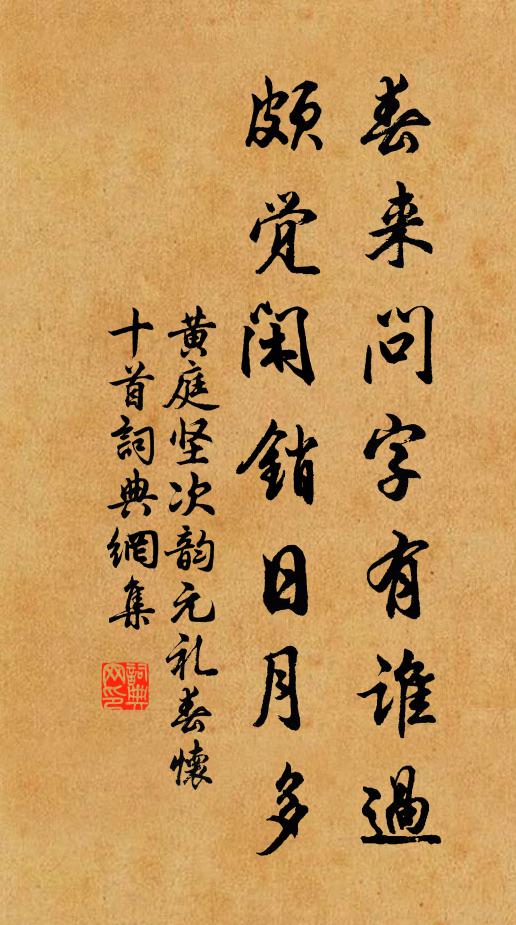 春来问字有谁过
颇觉闲销日月多
黄庭坚次韵元礼春怀
十首詞典網集
詞典
网印